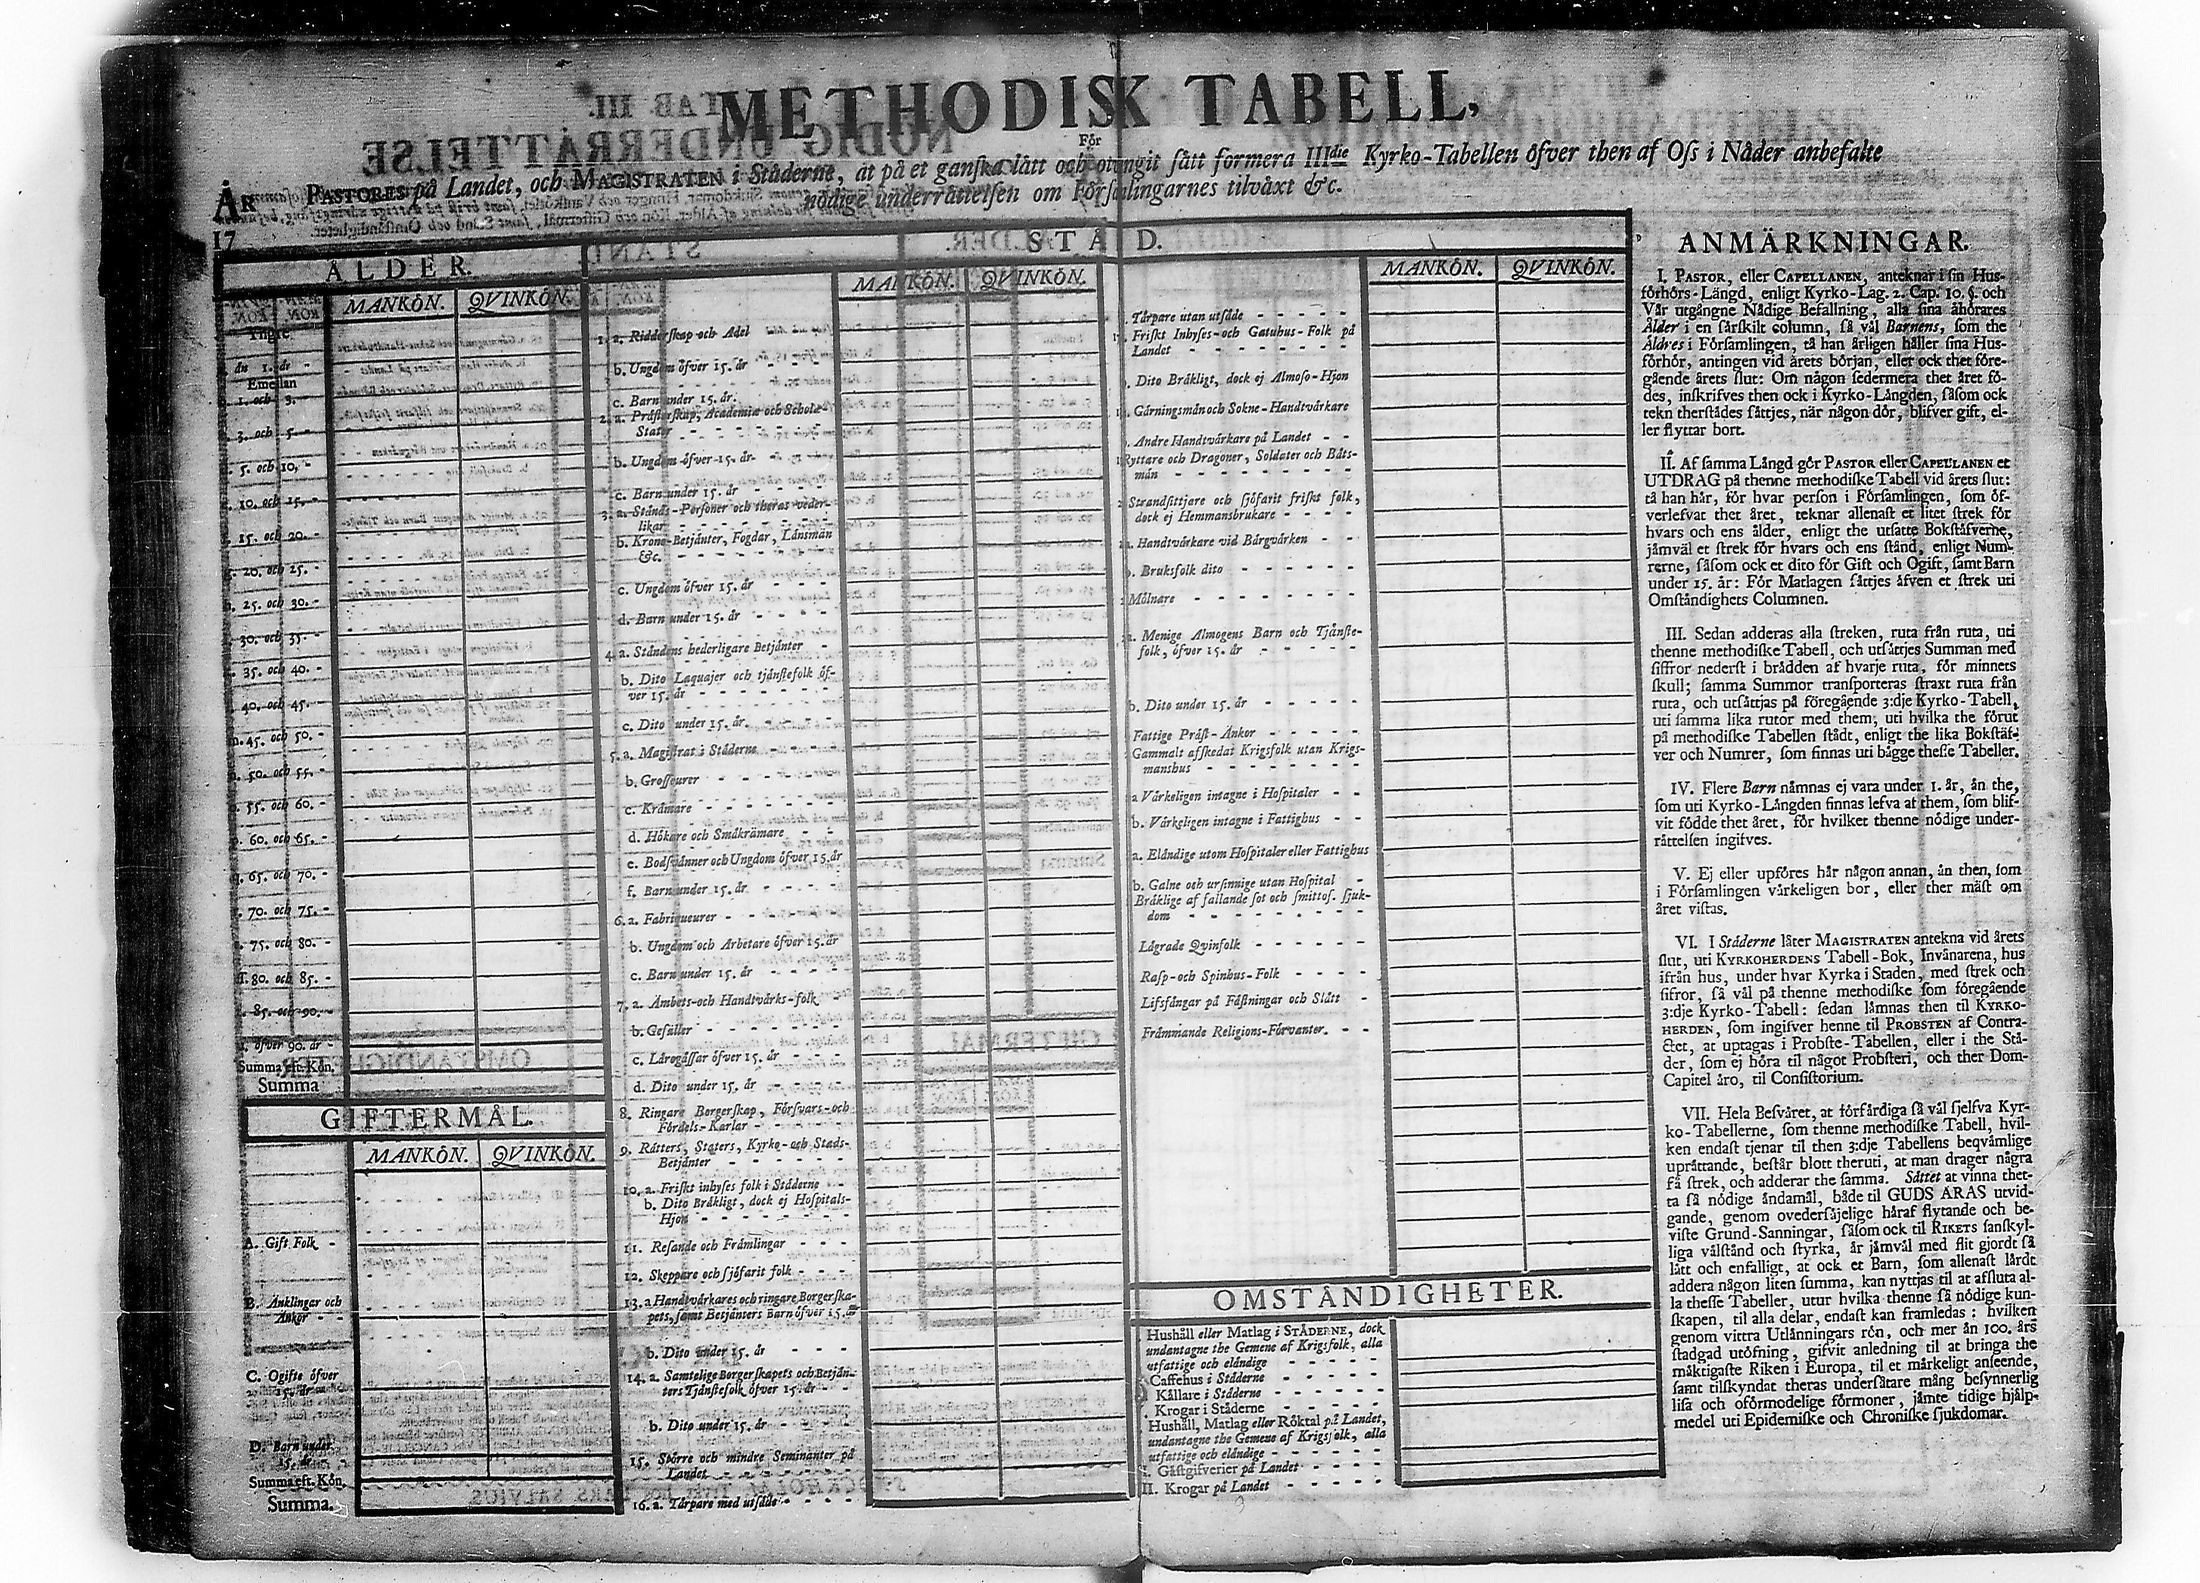 METHODISK TABELL,
För
PASTORES på Landet, och MAGISTRATEN i Städerne, at på et ganska lätt och otvungit sätt formera IIIdie Kyrko-Tabellen öfver then af Oss i Nåder anbefalte
nödige underrättelsen om Församlingarnes tilväxt &c.
ÅR
17
ÅLDER.
MANKÖN. QVINKÖN.
Yngre
än 1. år - -
Emellan
1. och 3.
3. och 5. -
5. och 10. -
10. och 15. -
15. och 20. -
20. och 25. -
25. och 30. -
30. och 35. -
35. och 40. -
40. och 45. -
45. och 50. -
50. och 55. -
55. och 60. -
60. och 65. -
65. och 70. -
70. och 75. -
75. och 80. -
80. och 85. -
85. och 90. -
öfver 90. år -
Summa eft. Kön.
Summa
GIFTERMÅL.
MANKÖN. QVINKÖN.
A. Gift Folk -
B. Änklingar och
Änkor - -
C. Ogifte öfver
15. år -
D. Barn under
15. år -
Summa eft. Kön.
Summa.
STÅND.
MANKÖN. QVINKÖN.
1. a. Ridderskap och Adel
b. Ungdom öfver 15. år
c. Barn under 15. år.
2. a. Prästerskap, Academiæ och Scholæ-
Stater - - - - - -
b. Ungdom öfver 15. år - - -
c. Barn under 15. år - - - -
3. a. Stånds-Personer och theras veder-
likar - - - - - -
b. Krono-Betjänter, Fogdar, Länsmän
&c. - - - - - -
c. Ungdom öfver 15. år - - -
d. Barn under 15. år - - - -
4. a. Ståndens hederligare Betjänter -
b. Dito Laquajer och tjänstefolk öf-
ver 15. år - - - - - -
c. Dito under 15. år. - - - -
5. a. Magistrat i Städerne - - - -
b. Grosseurer - - - - - -
c. Krämare - - - - - - -
d. Hökare och Småkrämare - -
e. Bodsvänner och Ungdom öfver 15. år
f. Barn under 15. år - - - -
6. a. Fabriqueurer - - - - - -
b. Ungdom och Arbetare öfver 15. år
c. Barn under 15. år - - - -
7. a. Ämbets- och Handtvärks-folk
b. Gesäller - - - - - - -
c. Lärogåssar öfver 15. år - - -
d. Dito under 15. år - - - -
8. Ringare Borgerskap, Försvars- och
Fördels-Karlar - - - - -
9. Rätters, Staters, Kyrko- och Stads-
Betjänter - - - - -
10. a. Friskt inhyses folk i Städerne - -
b. Dito Bräkligt, dock ej Hospitals-
Hjon - - - - - -
11. Resande och Främlingar - - -
12. Skeppare och sjöfarit folk - - -
13. a Handtvärkares och ringare Borgerska-
pets, samt Betjänters Barn öfver 15. år
b. Dito under 15. år - - - -
14. a. Samtelige Borgerskapets och Betjän-
ters Tjänstefolk öfver 15. år - -
b. Dito under 15. år - - - -
15. Större och mindre Seminanter på
Landet - - - - - -
16. a. Tårpare med utsäde - - - -
MANKÖN. QVINKÖN.
Tårpare utan utsäde - - - - -
Friskt Inhyses- och Gatuhus-Folk på
Landet - - - - - - -
Dito Bräkligt, dock ej Almoso-Hjon
Gärningsmän och Sokne-Handtvärkare
Andre Handtvärkare på Landet - -
Ryttare och Dragoner, Soldater och Båts-
män - - - - - - - -
Strandsittjare och sjöfarit friskt folk,
dock ej Hemmansbrukare - - - -
Handtvärkare vid Bärgvärken - -
b. Bruksfolk dito - - - - - -
Mölnare - - - - - - - -
Menige Almogens Barn och Tjänste-
folk, öfver 15. år - - - - -
b. Dito under 15. år - - - - -
Fattige Präst-Änkor - - - - -
Gammalt afskedat Krigsfolk utan Krigs-
manshus - - - - - - -
a Värkeligen intagne i Hospitaler - -
b. Värkeligen intagne i Fattighus - -
a. Eländige utom Hospitaler eller Fattighus
b. Galne och ursinnige utan Hospital -
Bräklige af fallande sot och smittos. sjuk-
dom - - - - - - - -
Lägrade Qvinfolk - - - - - -
Rasp- och Spinhus-Folk - - - -
Lifsfångar på Fästningar och Slått -
Främmande Religions-Förvanter. - -
OMSTÄNDIGHETER.
Hushåll eller Matlag i STÄDERNE, dock
undantagne the Gemene af Krigsfolk, alla
utfattige och eländige - - - - -
Caffehus i Städerne - - - - - -
Källare i Städerne - - - - - -
Krogar i Städerne - - - - - -
Hushåll, Matlag eller Röktal på Landet,
undantagne the Gemene af Krigsfolk, alla
utfattige och eländige - - - - -
I. Gästgifverier på Landet - - - -
II. Krogar på Landet - - - - -
ANMÄRKNINGAR.
I. PASTOR, eller CAPELLANEN, anteknar i sin Hus-
förhörs-Längd, enligt Kyrko-Lag. 2. Cap. 10. §. och
Vår utgångne Nådige Befallning, alla sina åhörares
Ålder i en särskilt column, så väl Barnens, som the
Äldres i Församlingen, tå han årligen håller sina Hus-
förhör, antingen vid årets början, eller ock thet före-
gående årets slut: Om någon sedermera thet året fö-
des, inskrifves then ock i Kyrko-Längden, såsom ock
tekn therstädes sättjes, när någon dör, blifver gift, el-
ler flyttar bort.
II. Af samma Längd gör PASTOR eller CAPELLANEN et
UTDRAG på thenne methodiske Tabell vid årets slut:
tå han här, för hvar person i Församlingen, som öf-
verlefvat thet året, teknar allenast et litet strek för
hvars och ens ålder, enligt the utsatte Bokstäfverne,
jämväl et strek för hvars och ens stånd, enligt Num-
rerne, såsom ock et dito för Gift och Ogift, samt Barn
under 15. år: För Matlagen sättjes äfven et strek uti
Omständighets Columnen.
III. Sedan adderas alla streken, ruta från ruta, uti
thenne methodiske Tabell, och utsättjes Summan med
siffror nederst i brädden af hvarje ruta, för minnets
skull; samma Summor transporteras straxt ruta från
ruta, och utsättjas på föregående 3:dje Kyrko-Tabell,
uti samma lika rutor med them, uti hvilka the förut
på methodiske Tabellen städt, enligt the lika Bokstäf-
ver och Numrer, som finnas uti bägge thesse Tabeller.
IV. Flere Barn nämnas ej vara under 1. år, än the,
som uti Kyrko-Längden finnas lefva at them, som blif-
vit födde thet året, för hvilket thenne nödige under-
rättelsen ingifves.
V. Ej eller upföres här någon annan, än then, som
i Församlingen värkeligen bor, eller ther mäst om
året vistas.
VI. I Städerne låter MAGISTRATEN antekna vid årets
slut, uti KYRKOHERDENS Tabell-Bok, Invånarena, hus
ifrån hus, under hvar Kyrka i Staden, med strek och
sifror, så väl på thenne methodiske som föregående
3:dje Kyrko-Tabell: sedan lämnas then til KYRKO-
HERDEN, som ingifver henne til PROBSTEN af Contra-
ctet, at uptagas i Probste-Tabellen, eller i the Stä-
der, som ej höra til något Probsteri, och ther Dom-
Capitel äro, til Consistorium.
VII. Hela Besväret, at förfärdiga så väl sjelfva Kyr-
ko-Tabellerne, som thenne methodiske Tabell, hvil-
ken endast tjenar til then 3:dje Tabellens beqvämlige
uprättande, består blott theruti, at man drager några
få strek, och adderar the samma. Sättet at vinna thet-
ta så nödige ändamål, både til GUDS ÄRAS utvid-
gande, genom ovedersäjelige häraf flytande och be-
viste Grund-Sanningar, såsom ock til RIKETS sanskyl-
liga välstånd och styrka, är jämväl med flit gjordt så
lätt och enfalligt, at ock et Barn, som allenast lärdt
addera någon liten summa, kan nyttjas til at afsluta al-
la thesse Tabeller, utur hvilka thenne så nödige kun-
skapen, til alla delar, endast kan framledas: hvilken
genom vittra Utlänningars rön, och mer än 100. års
stadgad utöfning, gifvit anledning til at bringa the
mäktigaste Riken i Europa, til et märkeligt anseende,
samt tilskyndat theras undersåtare mång besynnerlig
lisa och oförmodelige förmoner, jämte tidige hjälp-
medel uti Epidemiske och Chroniske sjukdomar.